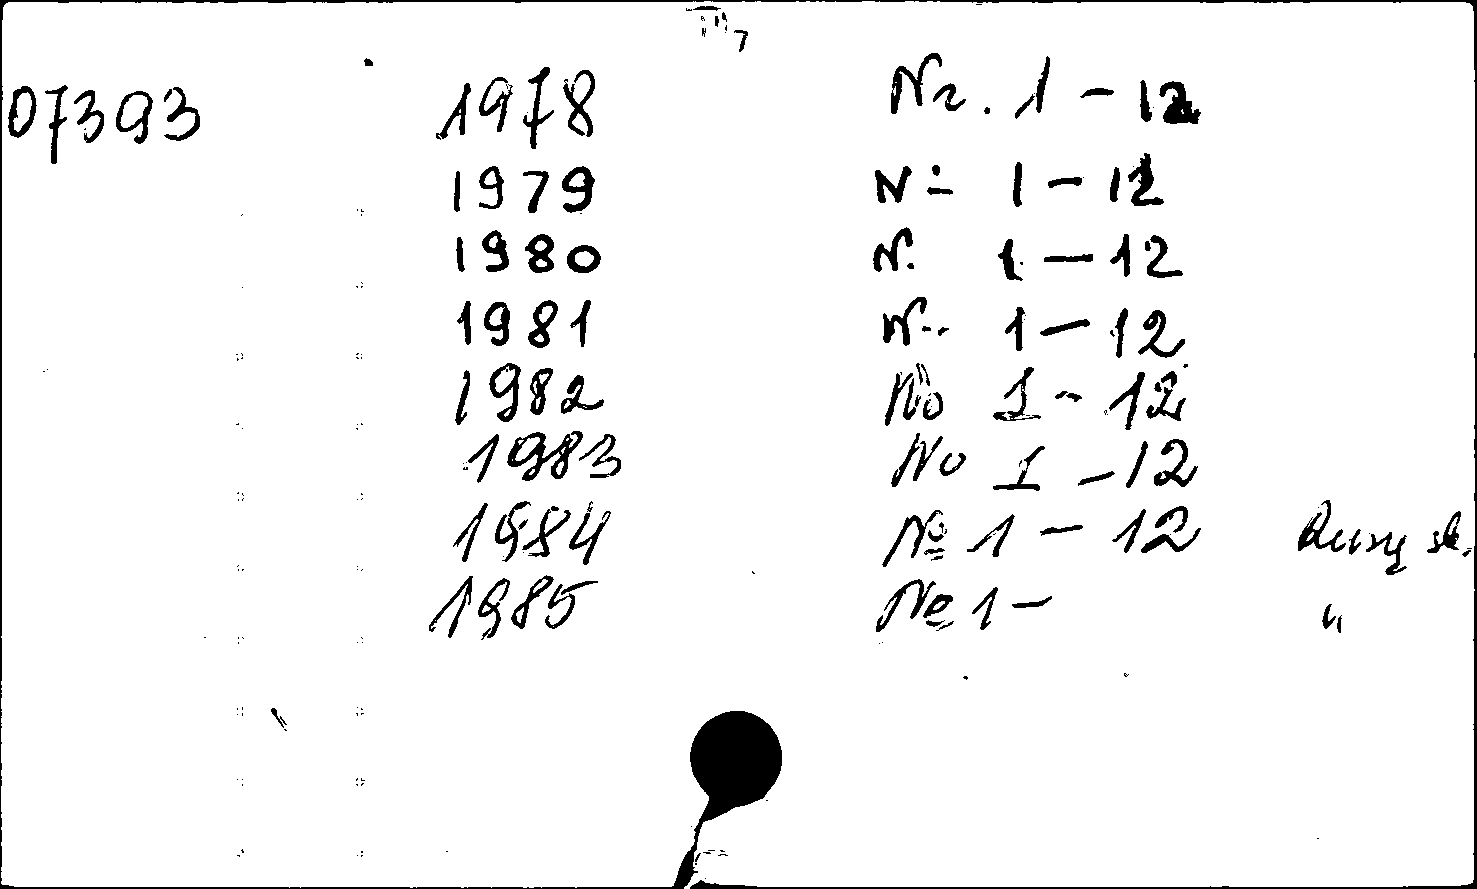 07393 1978 Nr. 1 - 12
1979 N- 1 - 12
1980 N. 1 - 12
1981 N.. 1 - 12
1982 No 1 - 12
1983 No 1 - 12
1984 № 1 - 12
1985 № 1 - "